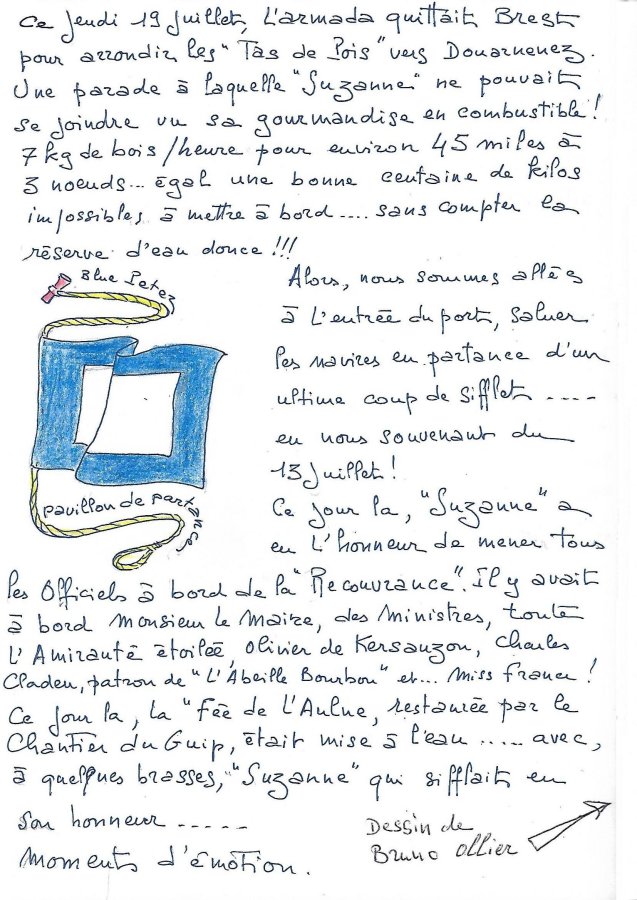 Ce Jeudi 19 Juillet, L'armada quittait Brest
pour arrondir les "Tas de Pois" vers Douarnenez.
Une parade à laquelle "Suzanne" ne pouvait
se joindre vu sa gourmandise en combustible !
7 kg de bois / heure pour environ 45 miles à
3 noeuds... égal une bonne centaine de kilos
impossibles à mettre à bord .... sans compter la
réserve d'eau douce !!!
Blue Peter
Alors, nous sommes allés
à L'entrée du port, saluer
les navires en partance d'un
ultime coup de sifflet ----
en nous souvenant du
13 Juillet !
pavillon de partance
Ce jour la, "Suzanne" a
eu L'honneur de mener tous
les Officiels à bord de la "Recouvrance". Il y avait
à bord Monsieur le Maire, des Ministres, toute
L'Amirauté étoilée, Olivier de Kersauzon, Charles
Claden, patron de "L'Abeille Bourbon" et... Miss France !
Ce jour la, la "Fée de L'Aulne, restaurée par le
Chantier du Guip, était mise à l'eau ..... avec,
à quelques brasses, "Suzanne" qui sifflait en
son honneur -----
Moments d'émotion.
Dessin de
Bruno Ollier